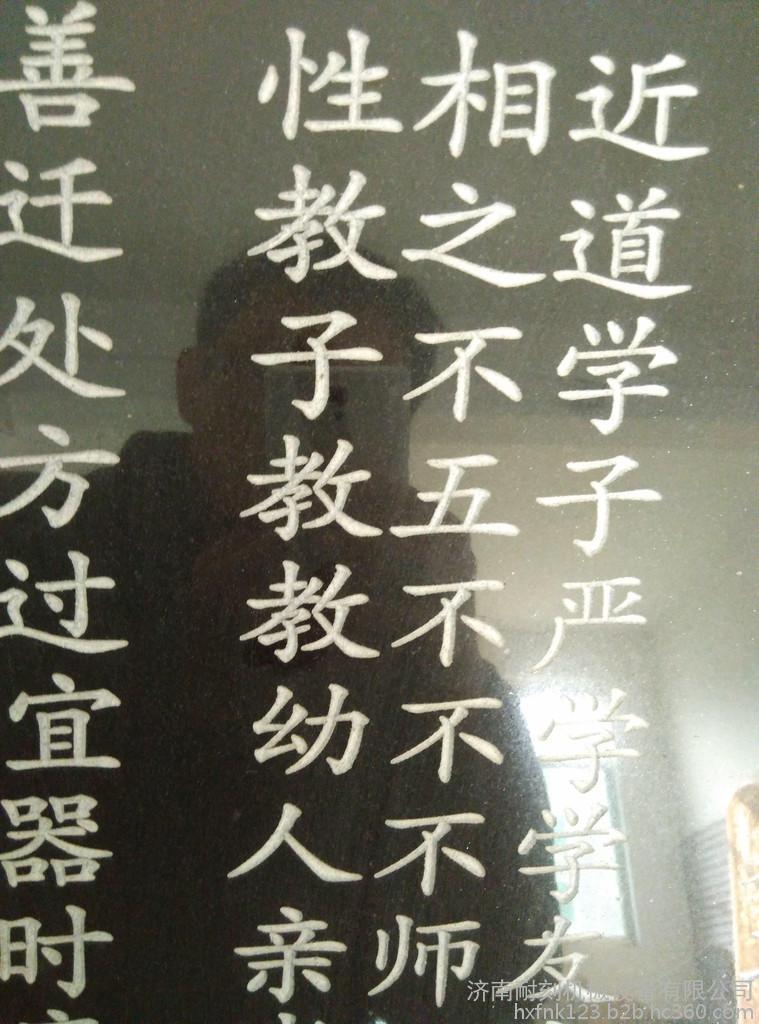 善 性相近
迁 教之道
处 子不学
方 教五子
过 教不严
宜 幼不学
器 人不学
时 亲师友
济南耐刻机械设备有限公司
hxfnk123.b2b.hc360.com